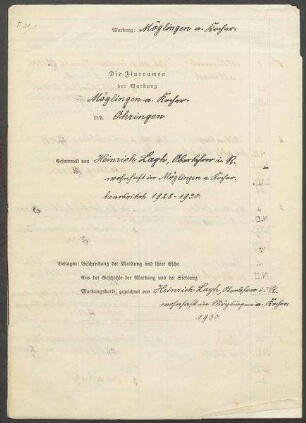 Markung: Möglingen a. Kocher.
Die Flurnamen
der Markung
Möglingen a. Kocher
O.A. Öhringen
Gesammelt von Heinrich Lagh, Oberlehrer i. R.
wohnhaft in Möglingen a. Kocher
bearbeitet 1928-1930.
Beilagen: Beschreibung der Markung und ihrer
Aus der Geschichte der Markung und der Siedlung
Markungskarte, gezeichnet von Heinrich Lagh, Oberlehrer i. R.
wohnhaft in Möglingen a. Kocher
1930